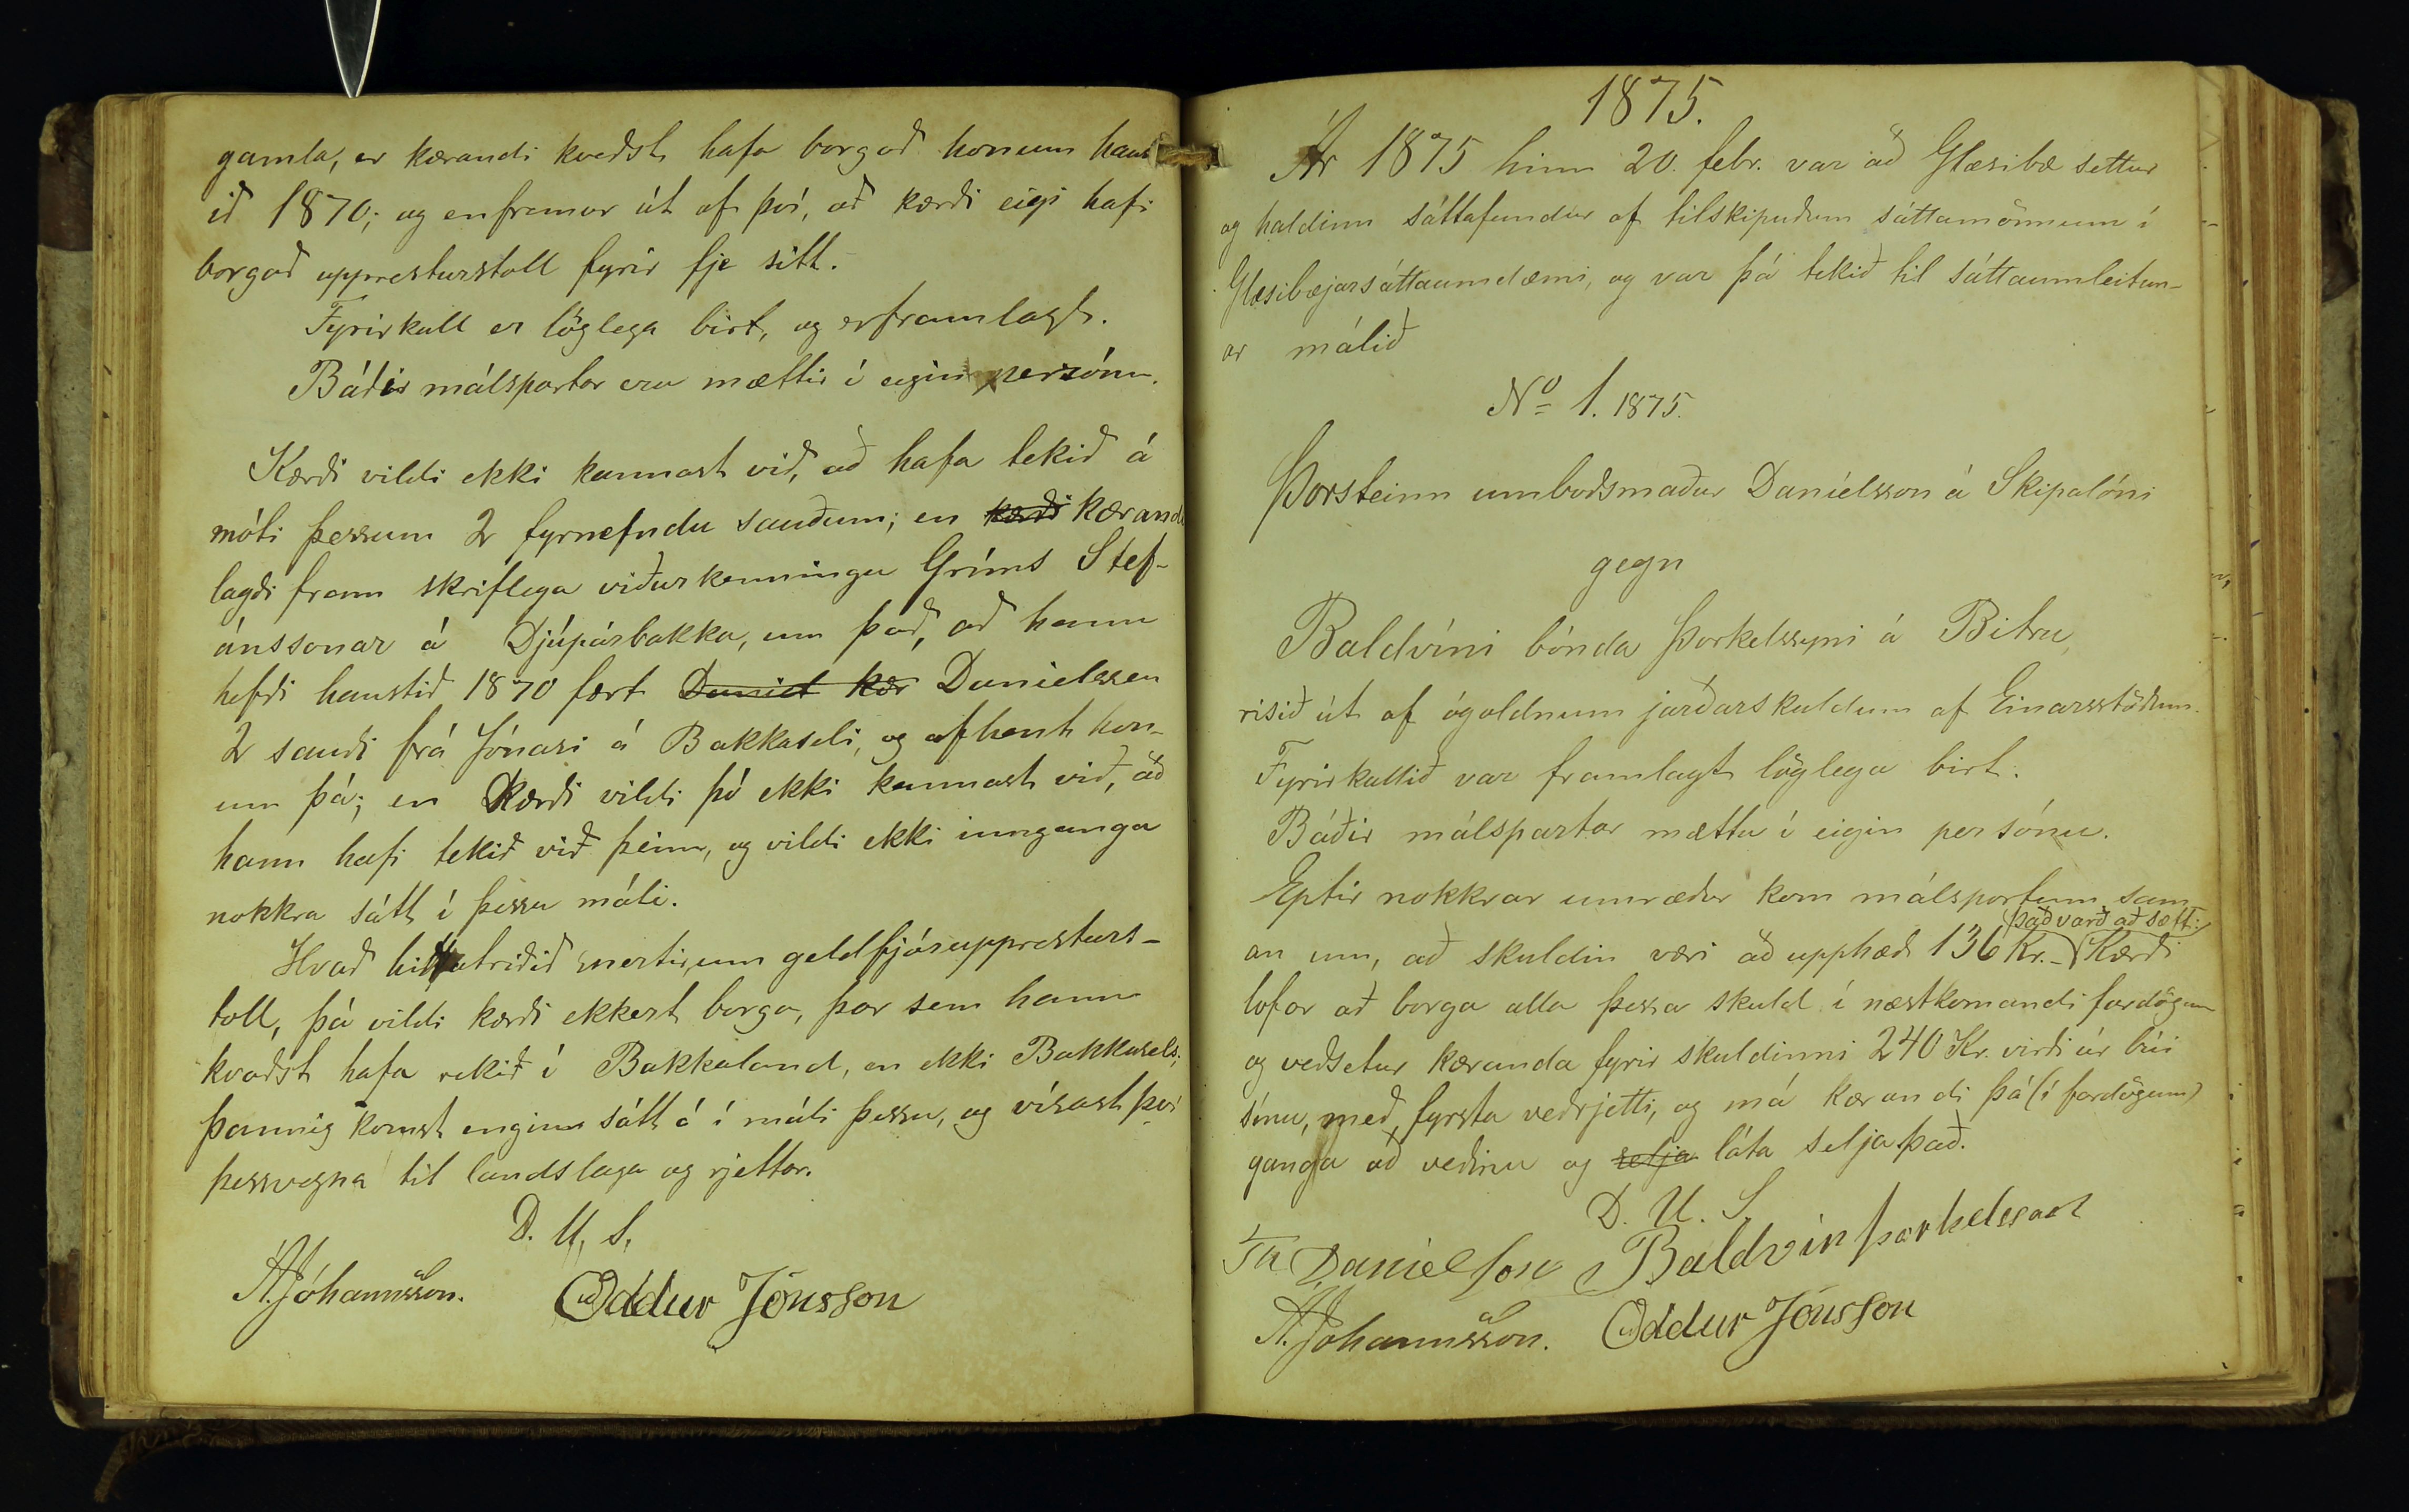 gamla, er kærandi kveðst hafa borgað honum haust
ið 1870; og enfremur út af því, að kærði eigi hafi
borgað uppresturstoll fyrir fje sitt.
Fyrirkall er löglega birt, og er framlagt.
Báðir málspartar eru mættir í eigin persónu.
Kærði vildi ekki kannast við, að hafa tekið á
móti þessum 2 fyrnefndu sauðum; en kærði kærandi
lagði fram skriflega viðurkenningu Gríms Stef-
ánssonar á Djúpárbakka, um það, að hann
hefði haustið 1870 fært Daniel kær Danielssen
2 sauði frá Jónasi á Bakkaseli, og afhent hon-
um þá; en Kærði vildi þó ekki kannast við, að
hann hafi tekið við þeim, og vildi ekki innganga
nokkra sátt í þessu máli.
Hvað hitt atriðið snertir, um geldfjáruppresturs-
toll, þá vildi kærði ekkert borga, þar sem hann
kvaðst hafa rekið í Bakkaland, en ekki Bakkasels;
þannig komst engin sátt á í máli þessu, og vísast því
þessvegna til landslaga og rjettar.
D. U. S.
A. Jóhannsson. Oddur Jónsson
1875.
Ár 1875 hinn 20. febr. var að Glæsibæ settur
og haldinn sáttafundur af tilskipuðum sáttamönnum í
Glæsibæjarsáttaumdæmi, og var þá tekið til sáttaumleitun-
ar málið
No 1. 1875.
Þorsteinn umboðsmaður Daníelsson á Skipalóni
gegn
Baldvini bónda Þorkelssyni á Bitru,
risið út af ógoldnum jarðarskuldum af Einarsstöðum.
Fyrirkallið var framlagt löglega birt.
Báðir málspartar mættu í eigin persónu.
Eptir nokkrar umræður kom málspörtum sam
það varð að sætt:
an um, að skuldin væri að upphæð 136 Kr. - Kærði
lofar að borga alla þessa skuld í næstkomandi fardögum
og veðsetur kæranda fyrir skuldinni 240 Kr. virði úr búi
sínu, með fyrsta veðrjetti, og má kærandi þá (í fardögum)
ganga að veðinu og selja láta selja það.
D. U. S.
Th Danielsson Baldvin Þorkelsson
A. Jóhannsson. Oddur Jónsson